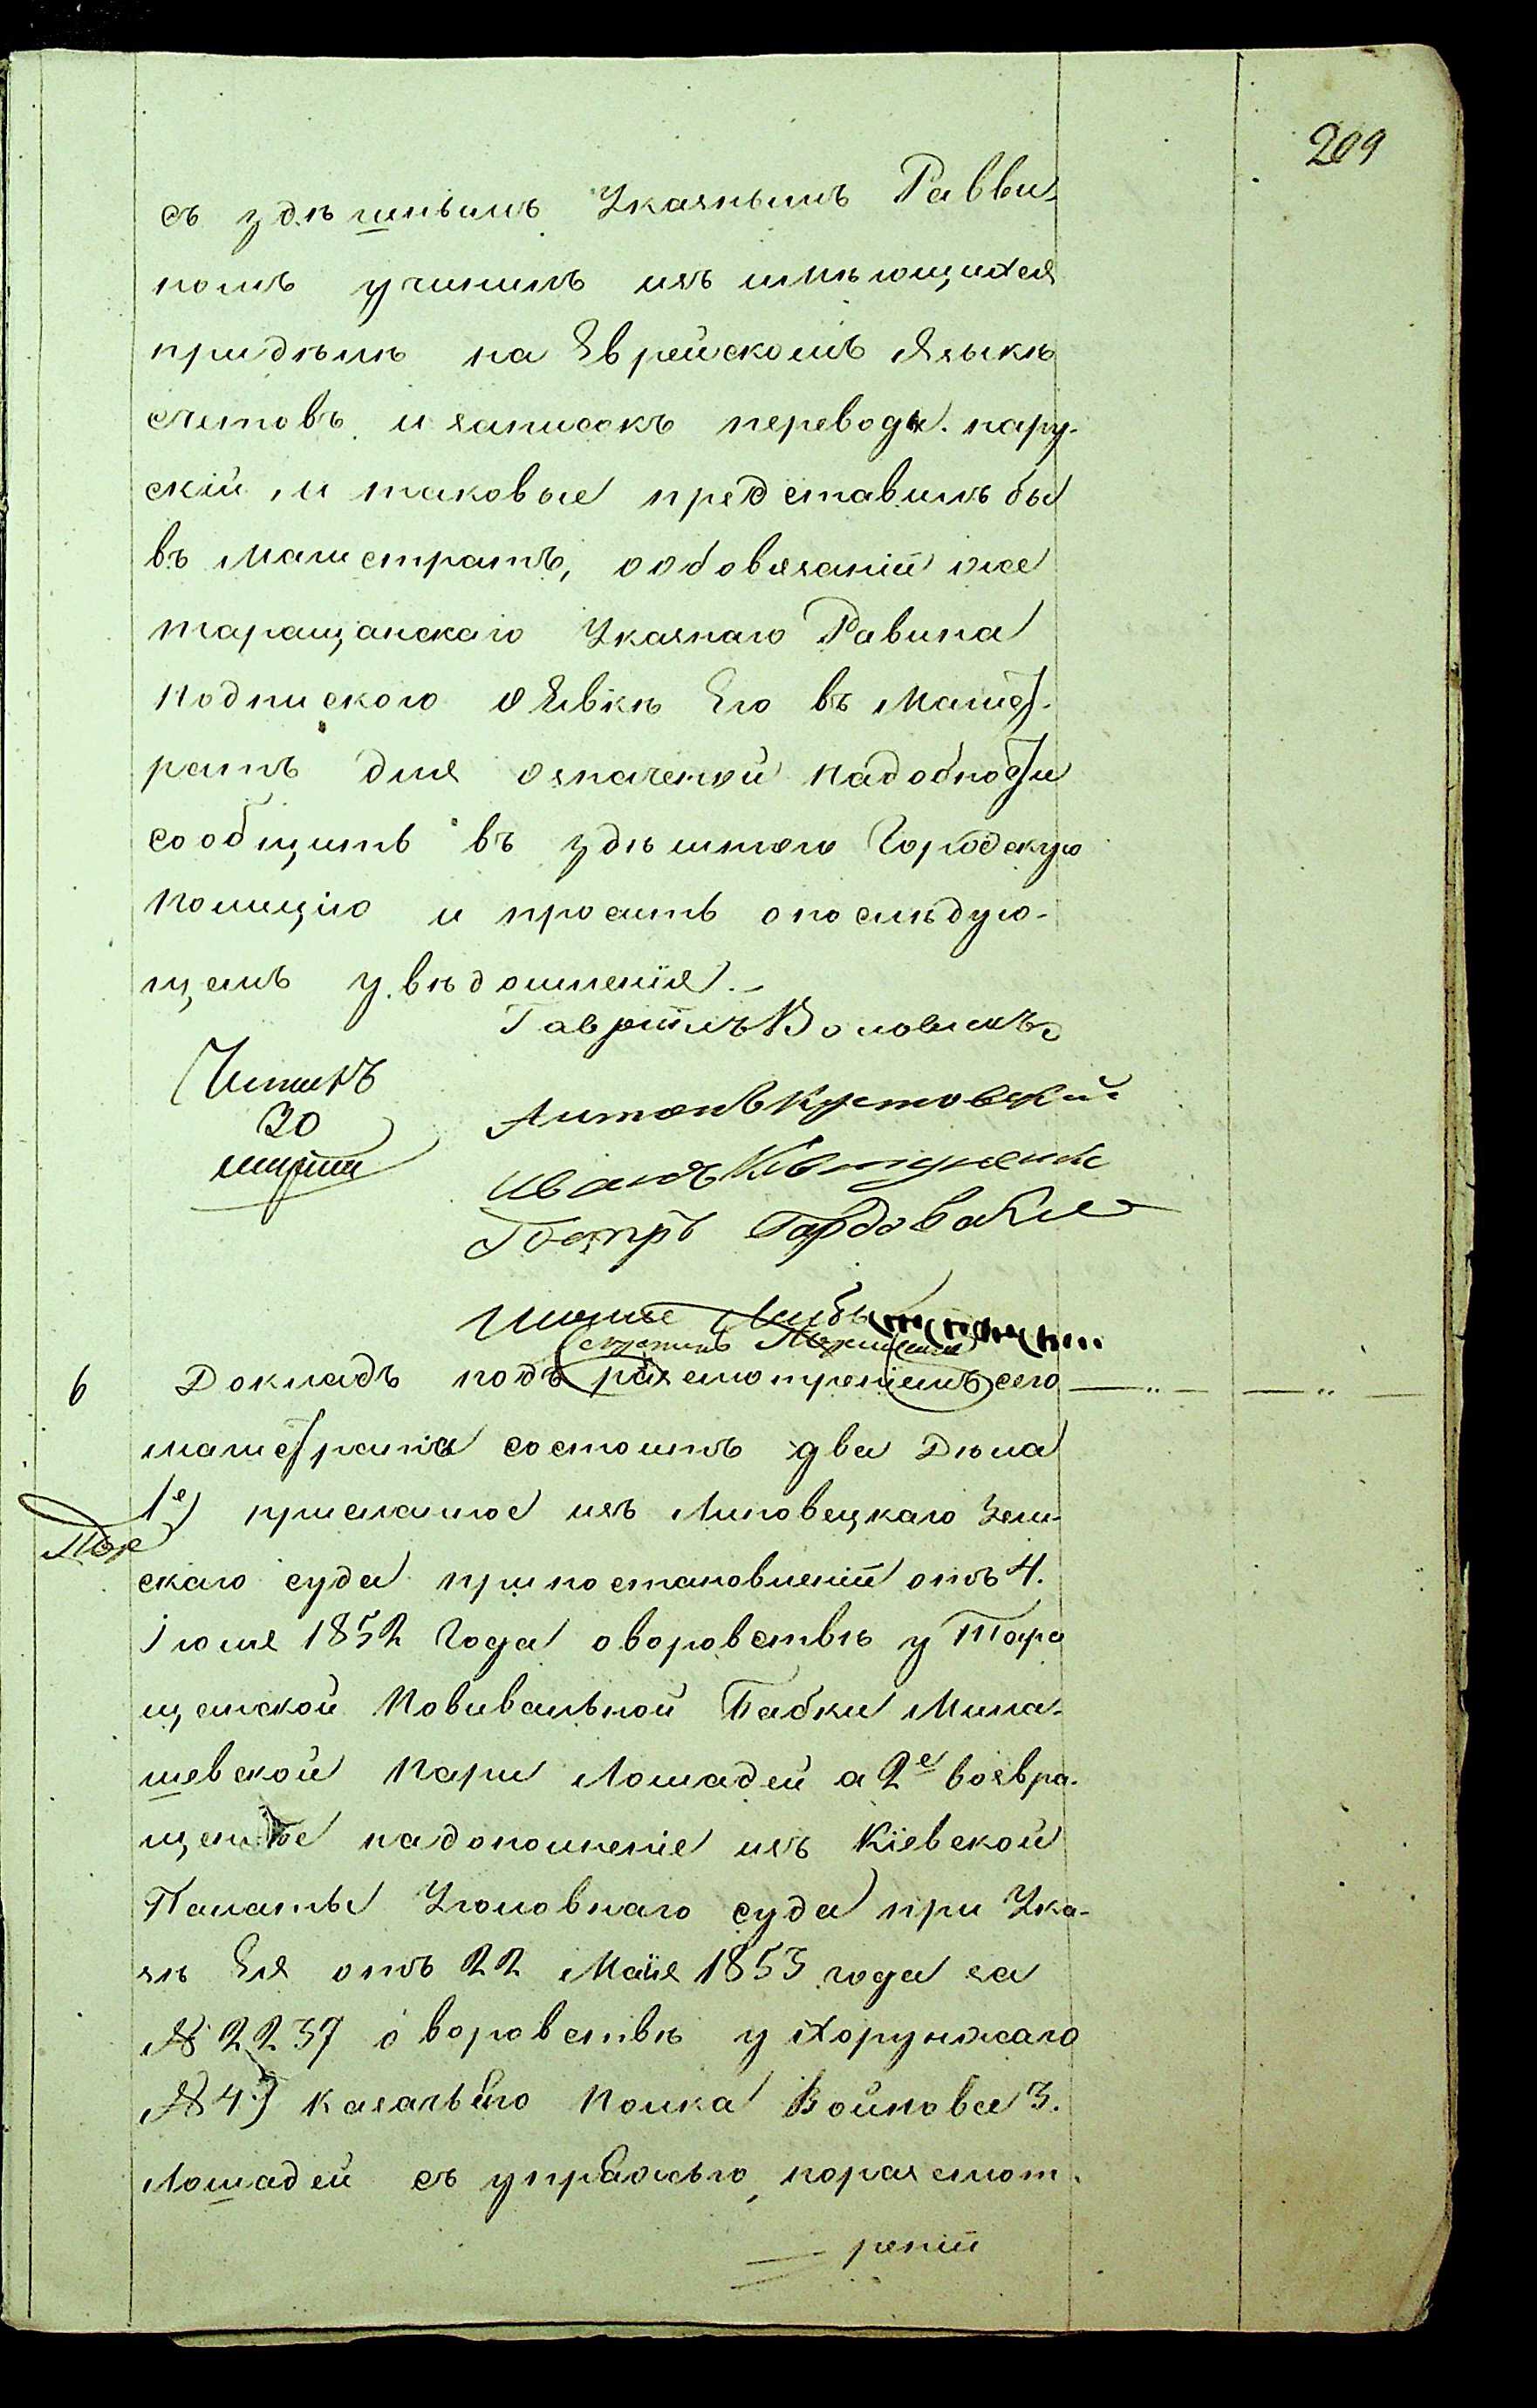 209
съ здѣшнымъ Указнымъ Равви-
номъ учинилъ изъ имѣющихся
придѣлѣ на Еврейскомъ Языкѣ
счетовъ и записокъ переводъ нару-
скій, и таковые представилъ бы
въ Магистратъ, ообовязаніи же
таращанскаго Указнаго Равина
подпискою оЯвкѣ Его въ Магист-
ратъ для означеной надобности
сообщить въ здѣшнюю Городскую
полицію и просить опослѣдую-
щемъ увѣдомленія.-
Гавріилъ
Читалъ
30
Антонъ
Иванъ
Петръ
6 Докладъ подъ разсмотреніемъ сего
магистрата состоитъ два Дѣла
1е) присланное изъ Липовецкаго Зем-
скаго суда припостановленіи отъ 4.
Іюля 1852 Года оворовствѣ у Тара
щанской Повивальной Бабки Мила-
шевской Пары Лошадей а 2е возвра-
щенное надополненіе изъ Кіевской
Палаты Уголовнаго суда при Ука-
зѣ Ея отъ 22 Маія 1853 года за
№ 2237 о воровствѣ у Хорунжаго
№ 4) казачьяго Полка Войнова 3.
Лошадей съ упряжью, поразсмот-
реніи